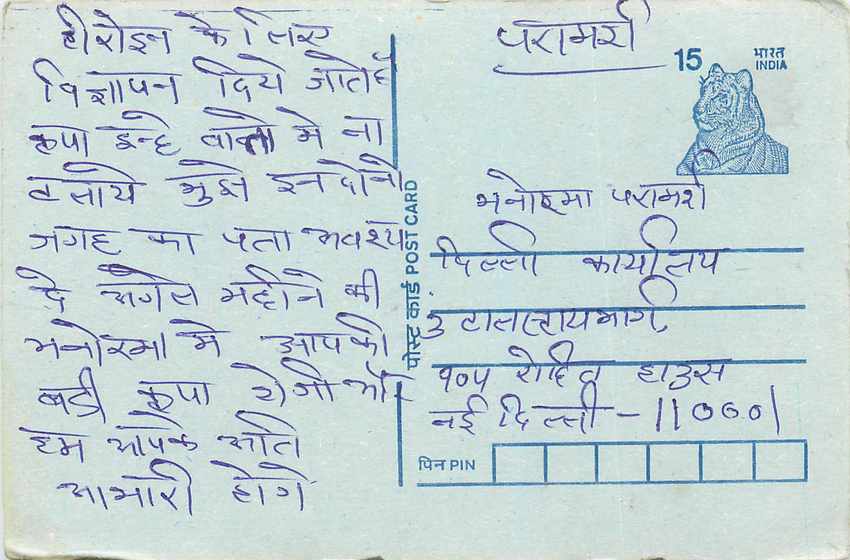 हीरोइन के लिए
विज्ञापन दिये जाते है
कृपा इन्हे बातो मे ना
टलाये मुझे इन दोनो
जगह का पता अवश्य
दे अगले महीने की
मनोरमा मे आपकी
बडी कृपा होगी और
हम आपके अति
आभारी होगे
परामर्श
15
भारत
INDIA
मनोरमा परामर्श
दिल्ली कार्यालय
टालस्टाय मार्ग,
१०५ रोहित हाउस
नई दिल्ली - 110001
पिन PIN
पोस्ट कार्ड POST CARD